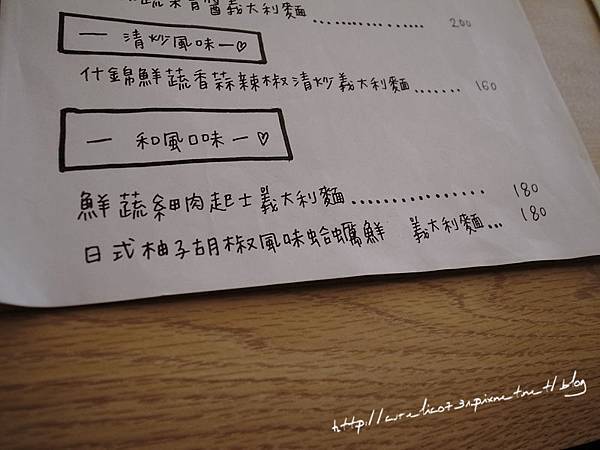 蔬菜青醬義大利麵................ 200
— 清炒風味 — ♡
什錦鮮蔬香蒜辣椒清炒義大利麵....... 160
— 和風口味 — ♡
鮮蔬細肉起士義大利麵............... 180
日式柚子胡椒風味蛤蠣鮮 義大利麵... 180